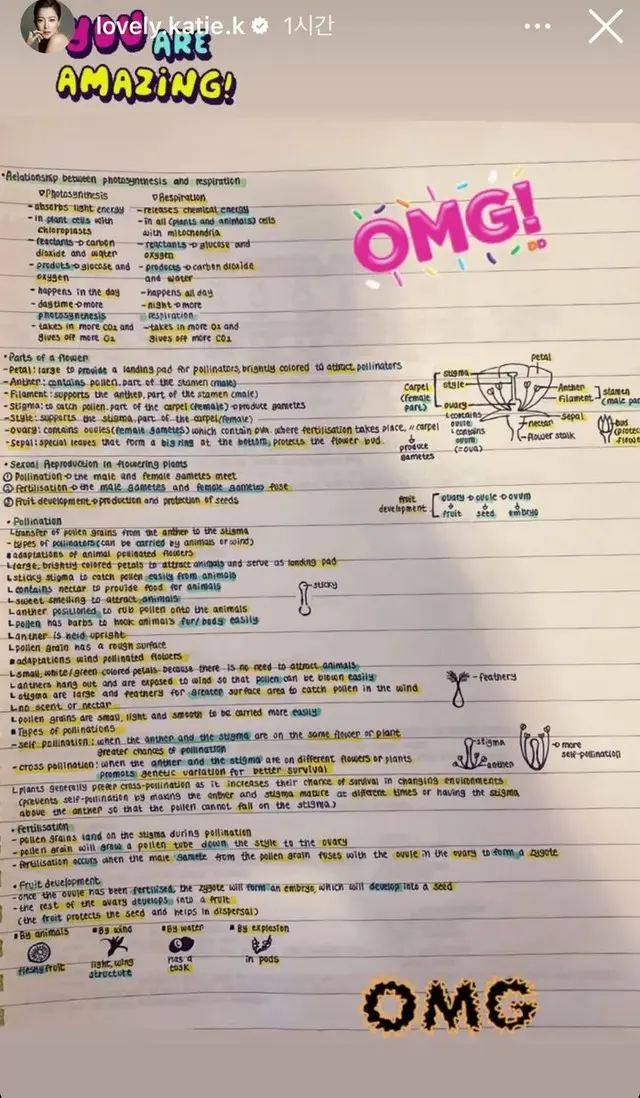 lovely.katie.k 1시간
YOU ARE
AMAZING!
•Relationship between photosynthesis and respiration
▽Photosynthesis
-absorbs light energy
-in plant cells with
chloroplasts
-reactants→carbon
dioxide and water
-produts→glocose and
oxygen
-happens in the day
-daytime→more
photosynthesis
-takes in more CO2 and
gives off more O2
▽Respiration
-releases chemical energy
-in all (plants and animals) cells
with mitochondria
-reactants→glucose and
oxygen
-products→carbon dioxide
and water
-happens all day
-night→more
respiration
-takes in more O2 and
gives off more CO2
OMG!
•Parts of a flower
-Petal: large to provide a landing pad for pollinators, brightly colored to attract pollinators
-Anther: contains pollen, part of the stamen (male)
-Filament: supports the anther, part of the stamen (male)
-Stigma: to catch pollen, part of the carpel (female)→produce gametes
-Style: supports the stigma, part of the carpel (female)
-Ovary: contains ovules (female gametes) which contain ova, where fertilisation takes place, carpel
-Sepal: special leaves that form a big ring at the bottom, protects the flower bud.
produce
gametes
petal
stigma
style
Carpel
(female
part)
ovary
contains
ovule
contains
ovum
(=ova)
Anther
Filament
stamen
(male
sepal
nectar
flower stalk
bud
•Sexual Reproduction in flowering plants
① Pollination→the male and female gametes meet
② Fertilisation→the male gametes and female gametes fuse
③ Fruit development→production and protection of seeds
fruit
development
ovary→ovule→ovum
fruit seed embryo
•Pollination
└transfer of pollen grains from the anther to the stigma
-types of pollinators (can be carried by animals or wind)
▪adaptations of animal pollinated flowers
└large, brightly colored petals to attract animals and serve as landing pad
└sticky stigma to catch pollen easily from animals
└contains nectar to provide food for animals
└sweet smelling to attract animals
└anther positioned to rub pollen onto the animals
└pollen has barbs to hook animals fur/body easily
└anther is held upright
└pollen grain has a rough surface
sticky
▪adaptations wind pollinated flowers
└small, white/green colored petals because there is no need to attract animals
└anthers hang out and are exposed to wind so that pollen can be blown easily
└stigma are large and feathery for greater surface area to catch pollen in the wind
└no scent or nectar
└pollen grains are small, light and smooth to be carried more easily
-feathery
▪Types of pollinations
-self pollination: when the anther and the stigma are on the same flower or plant
greater chances of pollination
-cross pollination: when the anther and the stigma are on different flowers or plants
promots genetic variation for better survival
└plants generally prefer cross-pollination as it increases their chance of survival in changing environments
(prevents self-pollination by making the anther and stigma mature at different times or having the stigma
above the anther so that the pollen cannot fall on the stigma)
stigma
anther
→more
self-pollination
•Fertilisation
-pollen grains land on the stigma during pollination
-pollen grain will grow a pollen tube down the style to the ovary
-fertilisation occurs when the male gamete from the pollen grain fuses with the ovule in the ovary to form a zygote
•Fruit development
-once the ovule has been fertilised, the zygote will form an embryo, which will develop into a seed
-the rest of the ovary develops into a fruit
(the fruit protects the seed and helps in dispersal)
▪By animals ▪By wind ▪By water ▪By explosion
fleshy fruit
light, wing
structure
has a
task
in pods
OMG